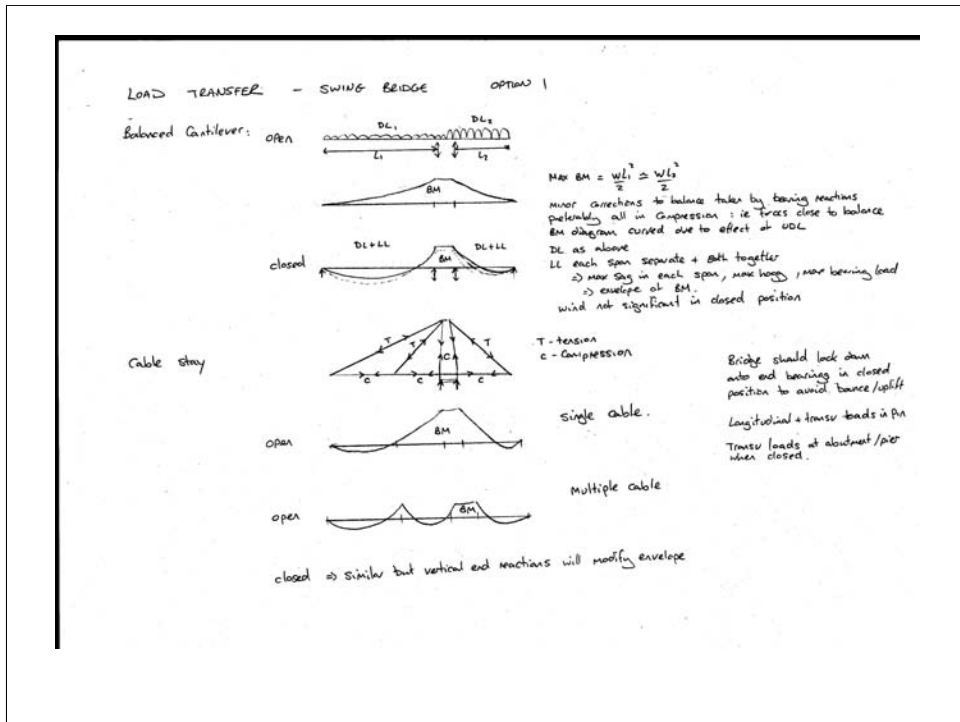 LOAD TRANSFER - SWING BRIDGE OPTION 1
Balanced Cantilever:
open
DL₁ DL₂
L₁ L₂
BM
MAX BM = WL₁²/2 ≃ WL₂²/2
minor corrections to balance taken by bearing reactions
preferably all in compression : ie forces close to balance
BM diagram curved due to effect of UDL
closed
DL+LL BM DL+LL
DL as above
LL each span separate + both together
⇒ max sag in each span, max hogg, max bearing load
⇒ envelope of BM.
wind not significant in closed position
Cable stay
T T T T
C C
C C C C
T - tension
C - Compression
Bridge should lock down
onto end bearing in closed
position to avoid bounce/uplift
Longitudinal + transv loads in pin
Transv loads at abutment/pier
when closed.
open
BM
Single cable.
open
BM
Multiple cable
closed ⇒ similar but vertical end reactions will modify envelope